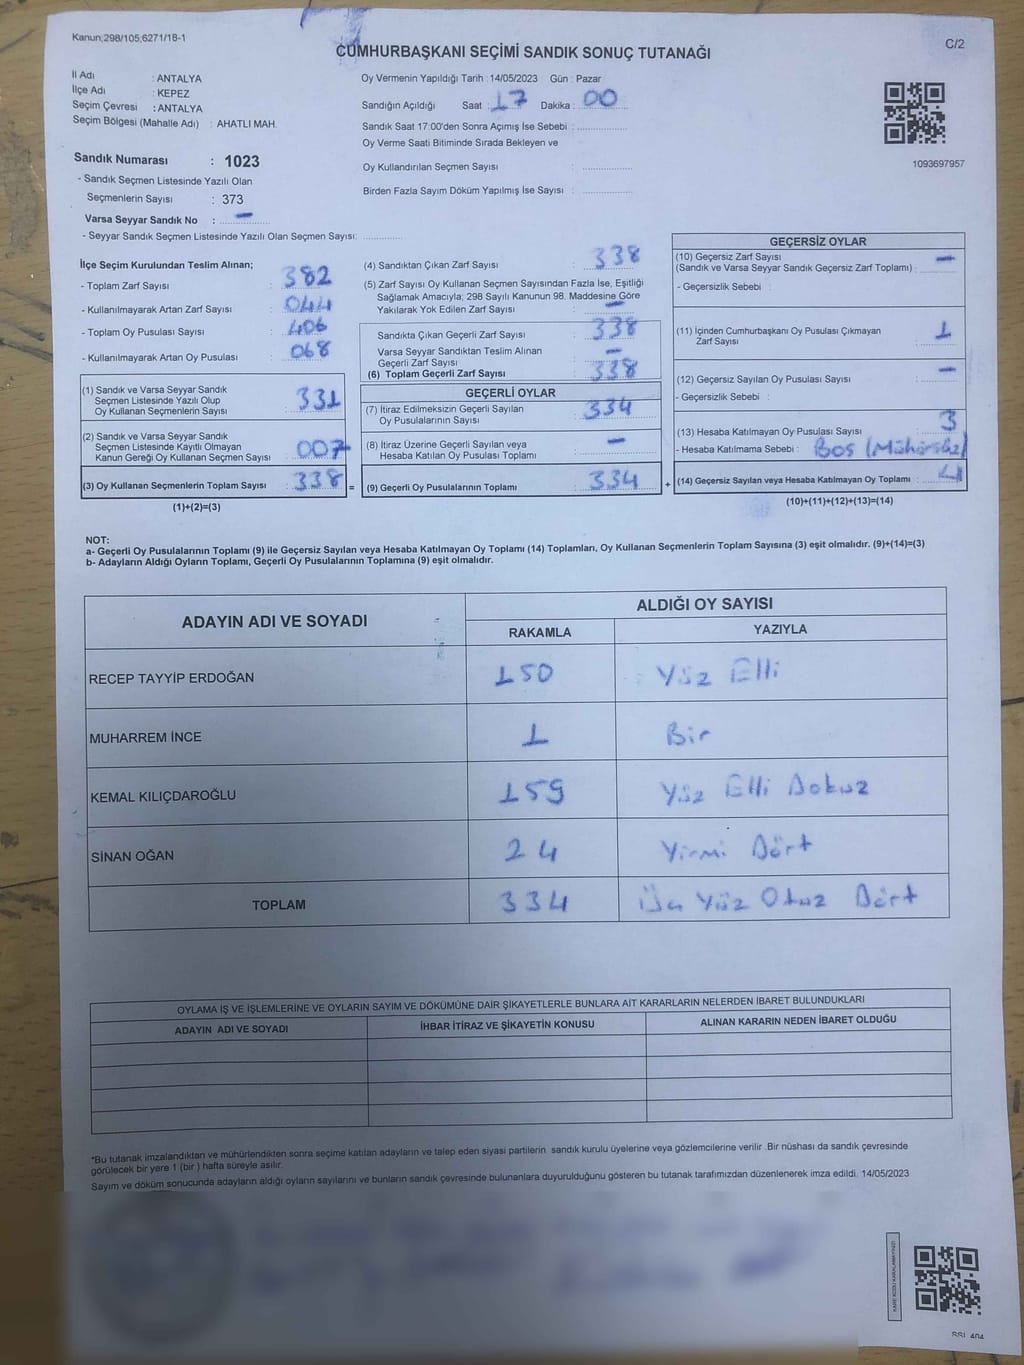 Kanun;298/105;6271/18-1
CUMHURBAŞKANI SEÇİMİ SANDIK SONUÇ TUTANAĞI
C/2
İl Adı : ANTALYA
İlçe Adı : KEPEZ
Seçim Çevresi : ANTALYA
Seçim Bölgesi (Mahalle Adı) : AHATLI MAH.
Sandık Numarası : 1023
- Sandık Seçmen Listesinde Yazılı Olan
Seçmenlerin Sayısı : 373
Varsa Seyyar Sandık No : -
- Seyyar Sandık Seçmen Listesinde Yazılı Olan Seçmen Sayısı: ............
Oy Vermenin Yapıldığı Tarih : 14/05/2023 Gün : Pazar
Sandığın Açıldığı Saat : 17 Dakika : 00
Sandık Saat 17:00'den Sonra Açımış İse Sebebi : ............
Oy Verme Saati Bitiminde Sırada Bekleyen ve
Oy Kullandırılan Seçmen Sayısı : ............
Birden Fazla Sayım Döküm Yapılmış İse Sayısı : ............
1093697957
İlçe Seçim Kurulundan Teslim Alınan;
- Toplam Zarf Sayısı : 382
- Kullanılmayarak Artan Zarf Sayısı : 044
- Toplam Oy Pusulası Sayısı : 406
- Kullanılmayarak Artan Oy Pusulası : 068
(1) Sandık ve Varsa Seyyar Sandık
Seçmen Listesinde Yazılı Olup
Oy Kullanan Seçmenlerin Sayısı : 331
(2) Sandık ve Varsa Seyyar Sandık
Seçmen Listesinde Kayıtlı Olmayan
Kanun Gereği Oy Kullanan Seçmen Sayısı : 007
(3) Oy Kullanan Seçmenlerin Toplam Sayısı : 338 =
(1)+(2)=(3)
(4) Sandıktan Çıkan Zarf Sayısı : 338
(5) Zarf Sayısı Oy Kullanan Seçmen Sayısından Fazla İse, Eşitliği
Sağlamak Amacıyla; 298 Sayılı Kanunun 98. Maddesine Göre
Yakılarak Yok Edilen Zarf Sayısı : -
Sandıkta Çıkan Geçerli Zarf Sayısı : 338
Varsa Seyyar Sandıktan Teslim Alınan
Geçerli Zarf Sayısı : -
(6) Toplam Geçerli Zarf Sayısı : 338
GEÇERLİ OYLAR
(7) İtiraz Edilmeksizin Geçerli Sayılan
Oy Pusulalarının Sayısı : 334
(8) İtiraz Üzerine Geçerli Sayılan veya
Hesaba Katılan Oy Pusulası Toplamı : -
(9) Geçerli Oy Pusulalarının Toplamı : 334 +
GEÇERSİZ OYLAR
(10) Geçersiz Zarf Sayısı
(Sandık ve Varsa Seyyar Sandık Geçersiz Zarf Toplamı) : -
- Geçersizlik Sebebi :
(11) İçinden Cumhurbaşkanı Oy Pusulası Çıkmayan
Zarf Sayısı : 1
(12) Geçersiz Sayılan Oy Pusulası Sayısı : -
- Geçersizlik Sebebi :
(13) Hesaba Katılmayan Oy Pusulası Sayısı : 3
- Hesaba Katılmama Sebebi : Boş (Mühürsüz)
(14) Geçersiz Sayılan veya Hesaba Katılmayan Oy Toplamı : 4
(10)+(11)+(12)+(13)=(14)
NOT:
a- Geçerli Oy Pusulalarının Toplamı (9) ile Geçersiz Sayılan veya Hesaba Katılmayan Oy Toplamı (14) Toplamları, Oy Kullanan Seçmenlerin Toplam Sayısına (3) eşit olmalıdır. (9)+(14)=(3)
b- Adayların Aldığı Oyların Toplamı, Geçerli Oy Pusulalarının Toplamına (9) eşit olmalıdır.
ADAYIN ADI VE SOYADI
ALDIĞI OY SAYISI
RAKAMLA YAZIYLA
RECEP TAYYİP ERDOĞAN 150 Yüz Elli
MUHARREM İNCE 1 Bir
KEMAL KILIÇDAROĞLU 159 Yüz Elli Dokuz
SİNAN OĞAN 24 Yirmi Dört
TOPLAM 334 Üç Yüz Otuz Dört
OYLAMA İŞ VE İŞLEMLERİNE VE OYLARIN SAYIM VE DÖKÜMÜNE DAİR ŞİKAYETLERLE BUNLARA AİT KARARLARIN NELERDEN İBARET BULUNDUKLARI
ADAYIN ADI VE SOYADI İHBAR İTİRAZ VE ŞİKAYETİN KONUSU ALINAN KARARIN NEDEN İBARET OLDUĞU
*Bu tutanak imzalandıktan ve mühürlendikten sonra seçime katılan adayların ve talep eden siyasi partilerin sandık kurulu üyelerine veya gözlemcilerine verilir .Bir nüshası da sandık çevresinde
görülecek bir yere 1 (bir ) hafta süreyle asılır.
Sayım ve döküm sonucunda adayların aldığı oyların sayılarını ve bunların sandık çevresinde bulunanlara duyurulduğunu gösteren bu tutanak tarafımızdan düzenlenerek imza edildi. 14/05/2023
KARE KODU KARALAMAYINIZ!